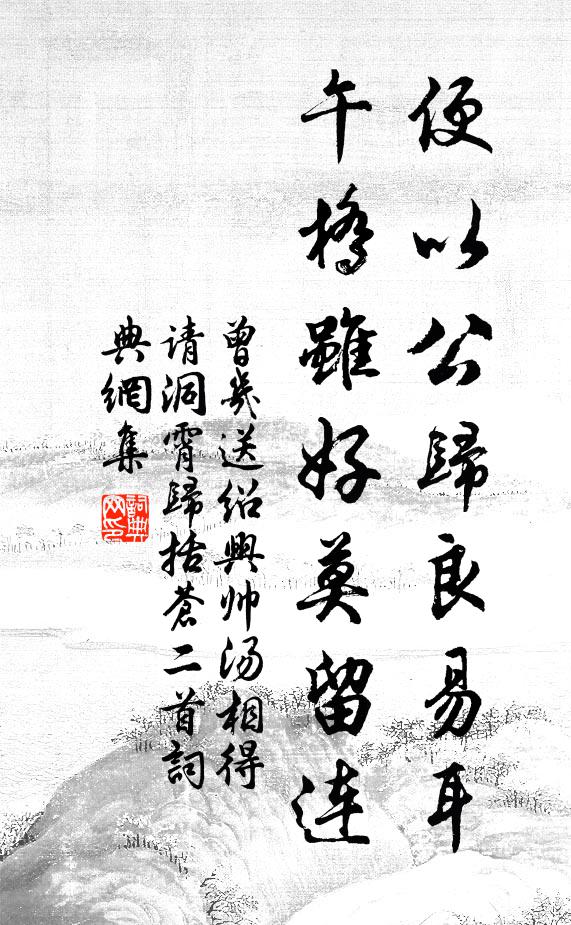 便以公歸良易耳
午橋雖好莫留連
曾幾送绍興帅汤相得
请洞霄歸括蒼二首詞
典網集
詞典
网印